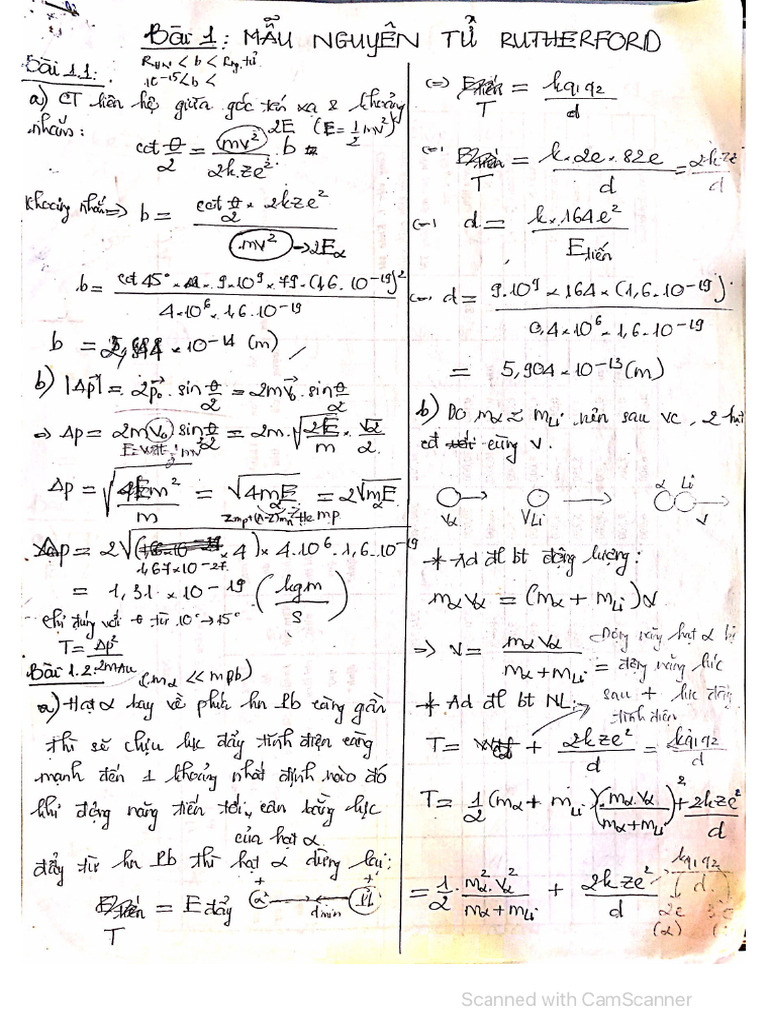 Bài 1: MẪU NGUYÊN TỬ RUTHERFORD
Bài 1.1:
R < b < R ng.tử
10^-15 < b <
a) CT liên hệ giữa góc tán xạ & khoảng
nhắm:
cot θ/2 = mv²/2kze² . b
2E (E = 1/2 mv²)
Khoảng nhắm => b = cot θ/2 × 2kze² / mv² → 2Eα
b = cot 45° × 9.10^9 × 79 . (1,6 . 10^-19)² / 4.10^6 . 1,6.10^-19
× 10^-14 (m)
b) |Δp⃗| = 2p⃗₀ . sin θ/2 = 2mv⃗₀ . sin θ/2
=> Δp = 2m v₀ sin θ/2 = 2m . √(2E/m) × √2/2
Δp = √(4Em²/m) = √(4mE) = 2√(mαE)
Δp = 2√( × 4) × 4.10^6 . 1,6.10^-19
1,67×10^-27
= 1,31 × 10^-19 (kgm/s)
chỉ đúng với θ từ 10° → 15°
T = Δp²/2mAu
Bài 1.2: (mα << mPb)
a) Hạt α bay về phía hn Pb càng gần
thì sẽ chịu lực đẩy tĩnh điện càng
mạnh đến 1 khoảng nhất định nào đó
khi động năng tiến tới cân bằng lực
của hạt α
đẩy từ hn Pb thì hạt α dừng lại:
E tiến = E đẩy
T
α + dmin + Pb
(=) E tiến = kq1q2/d
T
(=) E tiến = k×2e×82e/d = 2kze²/d
T
(=) d = k×164e²/E tiến
(=) d = 9.10^9 × 164 × (1,6.10^-19)² / 0,4×10^6 . 1,6.10^-19
= 5,904×10^-13 (m)
b) Do mα ≈ mLi nên sau vc, 2 hạt
có cùng v.
Vα VLi α Li v
* Ad đl bt động lượng:
mαvα = (mα + mLi)v
=> v = mαvα/(mα + mLi)
Động năng hạt α bị
= động năng lúc
sau + lực đẩy
tĩnh điện
* Ad đl bt NL:
T = + 2kze²/d = kq1q2/d
T = 1/2 (mα + mLi)(mα.vα/(mα+mLi))² + 2kze²/d
= 1/2 . mα².vα²/(mα+mLi) + 2kze²/d
kq1q2
d
2e
(α)
Scanned with CamScanner